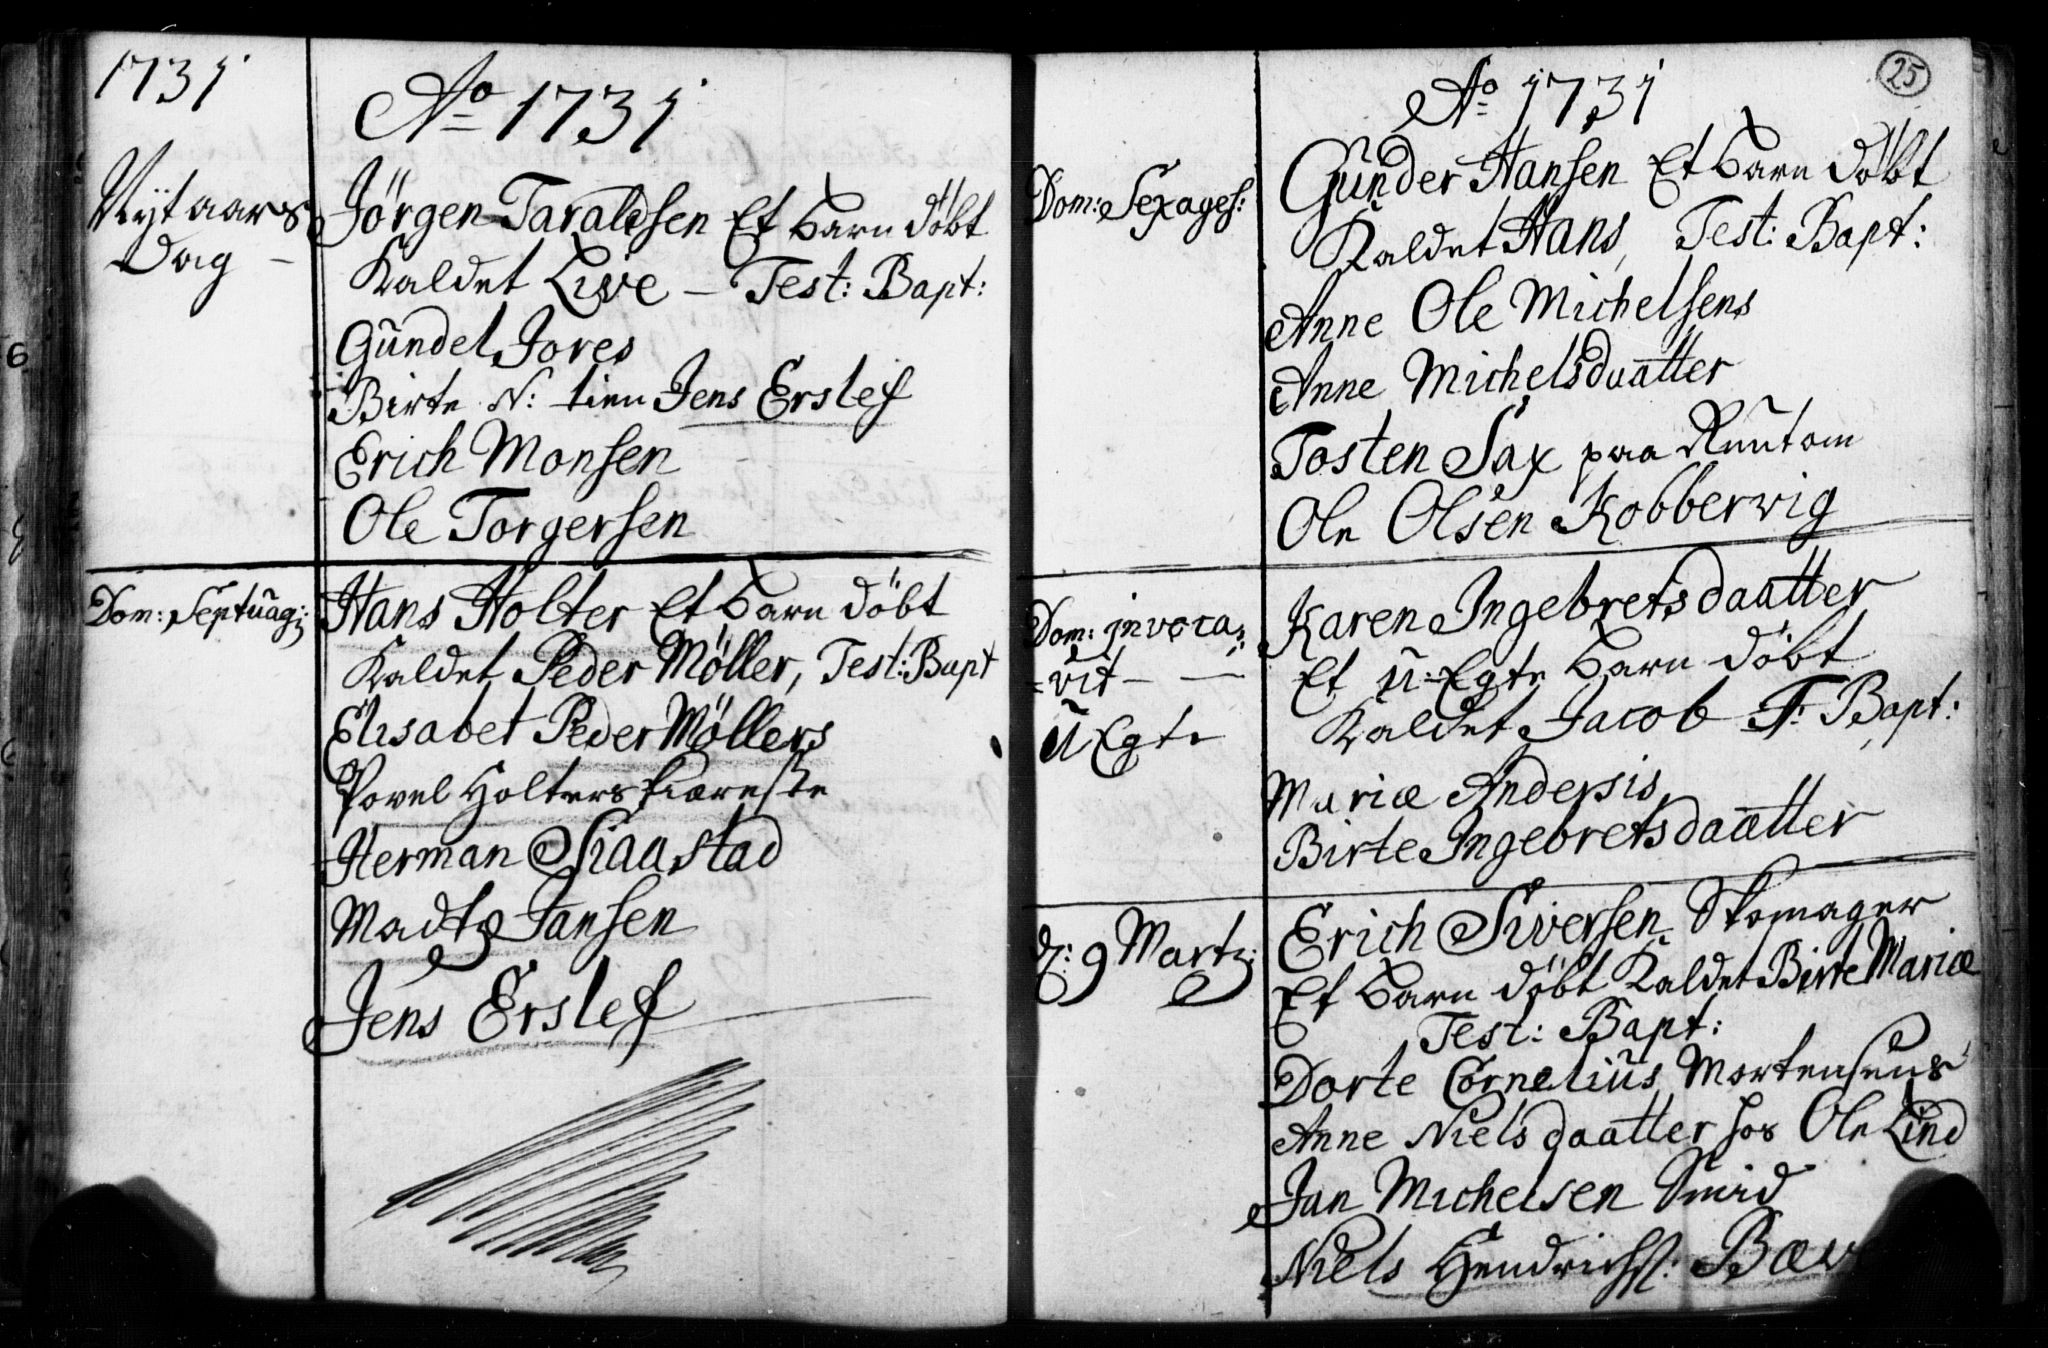 1731
Aº 1731
Nÿtaars
Dag -
Jörgen Taraldsen Et barn döbt
Kaldet Live - Test: Bapt:
Gundel Jores
Birte N: tien Jens Erslef
Erich Monsen
Ole Torgersen
Dom: Septuag:
Hans Holter Et barn döbt
Kaldet Peder Möller, Test: Bapt
Elisabet Peder Möllers
Povel Holters kiæreste
Herman Siaastad
Madtz Jansen
Jens Erslef
25
Aº 1731
Dom: Sexages:
Gunder Hansen Et barn döbt
Kaldet Hans, Test: Bapt:
Anne Ole Michelsens
Anne Michelsdaatter
Tosten Sax paa Ruutom
Ole Olsen Kobbervig
Dom: invoca=
=vit -
u Egte
Karen Ingebretsdaatter
Et u-Egte barn döbt
Kaldet Jacob T: Bapt:
Mariæ Andersis
Birte Ingebretsdaatter
d: 9 Martz:
Erich Siversen Skomager
Et barn döbt Kaldet Birte Mariæ
Test: Bapt:
Dorte Cornelius Mortensens
Anne Nielsdaatter hos Ole Lind
Jan Michelsen Smid
Niels Hendrichs: